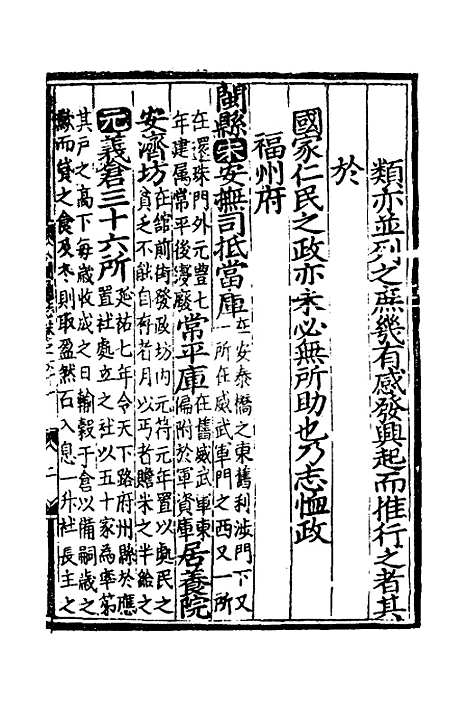 類亦並列之庶幾有感發興起而推行之者其
於
國家仁民之政亦未必無所助也乃志恤政
福州府
閩縣宋安撫司抵當庫在安泰橋之東舊利涉門下又一所在威武軍門之西又一所
在還珠門外元豐七年建屬常平後寖廢常平庫在舊威武軍東偏附於軍資庫居養院
安濟坊在舘前街發政坊內元符元年置以處民之貧乏不能自存者月以丐者贍米之半給之
元義倉三十六所延祐七年令天下路府州縣於應置社處立之社以五十家為率第
其戶之高下每歲收成之日輸穀于倉以備詞歲之
歉而貸之食及冬則取盈然石入息一升社長主之